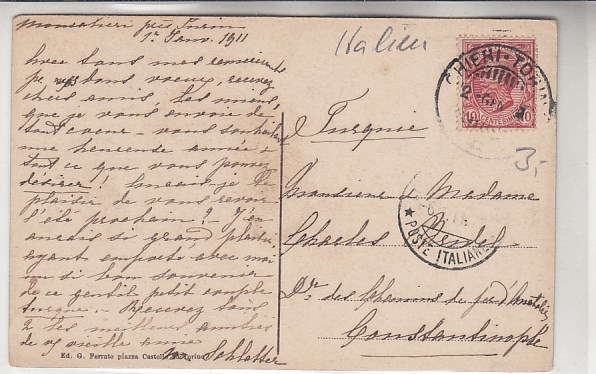 Moncalieri près Turin
1er Janv. 1911
Avec tous mes remerciements
p. vos bons voeux, recevez
chers amis, les miens,
que je vous envoie de
tout coeur. Vous souhaitant
une heureuse année &
tout ce que vous pouvez
désirer! Aurai-je le
plaisir de vous revoir
l'été prochain? - J'en
aurais si grand plaisir,
ayant emporté avec moi
un si bon souvenir
de ce gentil petit couple
turque. - Recevez tous
2 les meilleures amitiés
de vs vieille amie
Schlatter
Ed. G. Ferrato piazza Castello Torino
Italien
CHIERI-TORINO
10 10
3,-
Turquie
Monsieur & Madame
Charles
POSTE ITALIANE
Dr. des Chemins de fer d'Anatolie
Constantinople